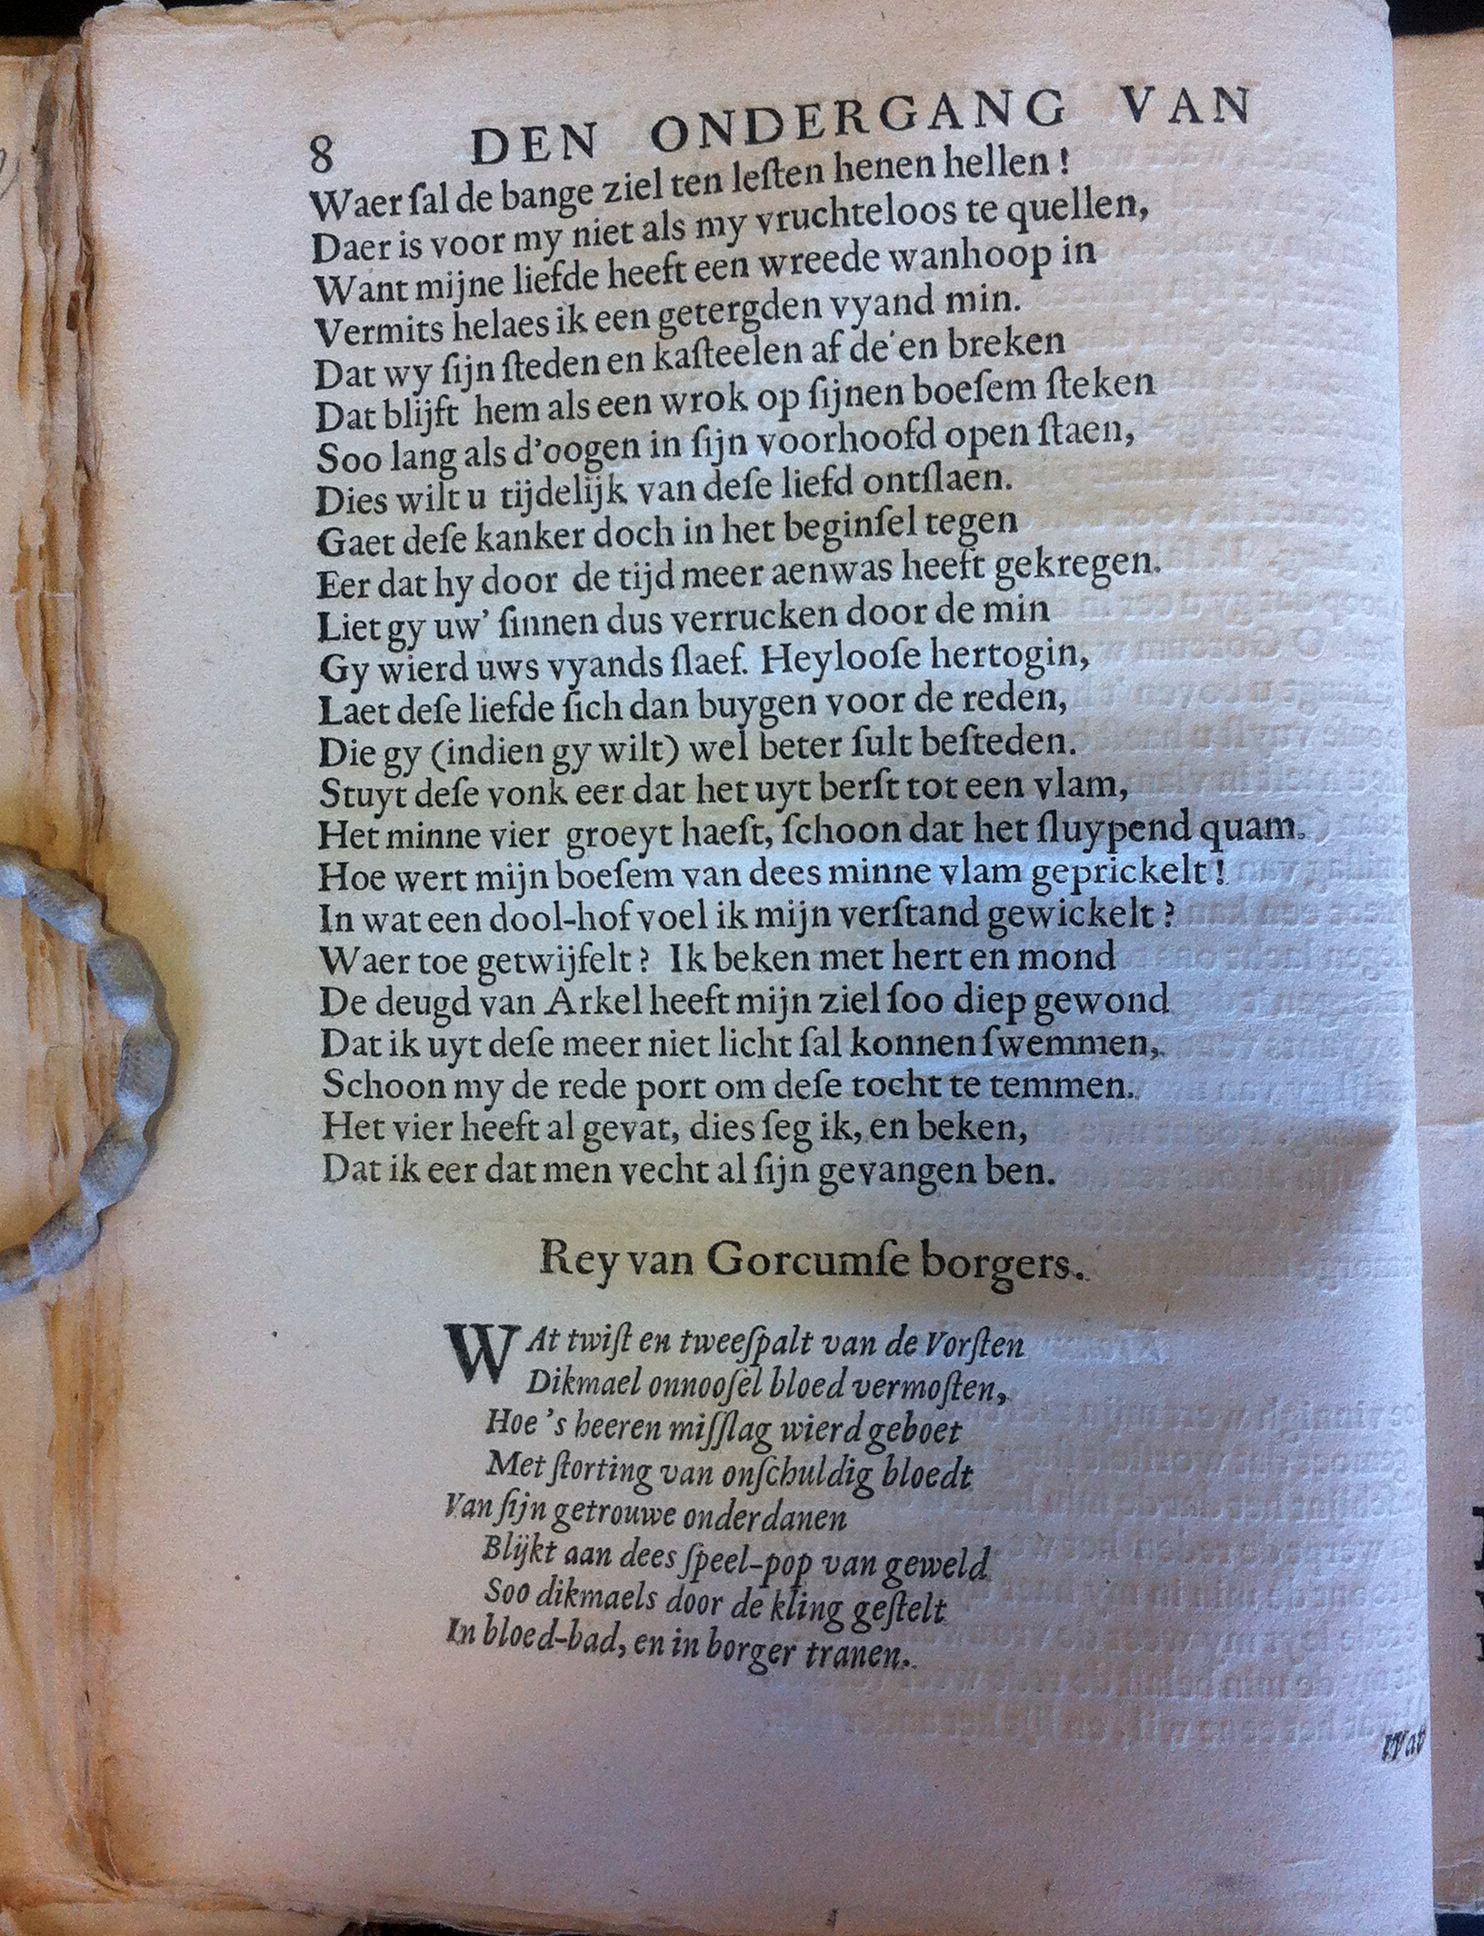 8 DEN ONDERGANG VAN
Waer ſal de bange ziel ten leſten henen hellen!
Daer is voor my niet als my vruchteloos te quellen,
Want mijne liefde heeft een wreede wanhoop in
Vermits helaes ik een getergden vyand min.
Dat wy ſijn ſteden en kaſteelen af de'en breken
Dat blijft hem als een wrok op ſijnen boeſem ſteken
Soo lang als d'oogen in ſijn voorhoofd open ſtaen,
Dies wilt u tijdelijk van deſe liefd ontſlaen.
Gaet deſe kanker doch in het beginſel tegen
Eer dat hy door de tijd meer aenwas heeft gekregen.
Liet gy uw' ſinnen dus verrucken door de min
Gy wierd uws vyands ſlaef. Heylooſe hertogin,
Laet deſe liefde ſich dan buygen voor de reden,
Die gy (indien gy wilt) wel beter ſult beſteden.
Stuyt deſe vonk eer dat het uyt berſt tot een vlam,
Het minne vier groeyt haeſt, ſchoon dat het ſluypend quam.
Hoe wert mijn boeſem van dees minne vlam geprickelt!
In wat een dool-hof voel ik mijn verſtand gewickelt?
Waer toe getwijfelt? Ik beken met hert en mond
De deugd van Arkel heeft mijn ziel ſoo diep gewond
Dat ik uyt deſe meer niet licht ſal konnen ſwemmen,
Schoon my de rede port om deſe tocht te temmen.
Het vier heeft al gevat, dies ſeg ik, en beken,
Dat ik eer dat men vecht al ſijn gevangen ben.
Rey van Gorcumſe borgers.
WAt twiſt en tweeſpalt van de Vorſten
Dikmael onnooſel bloed vermoſten,
Hoe 's heeren miſſlag wierd geboet
Met ſtorting van onſchuldig bloedt
Van ſijn getrouwe onderdanen
Blijkt aan dees ſpeel-pop van geweld
Soo dikmaels door de kling geſtelt
In bloed-bad, en in borger tranen.
Wat